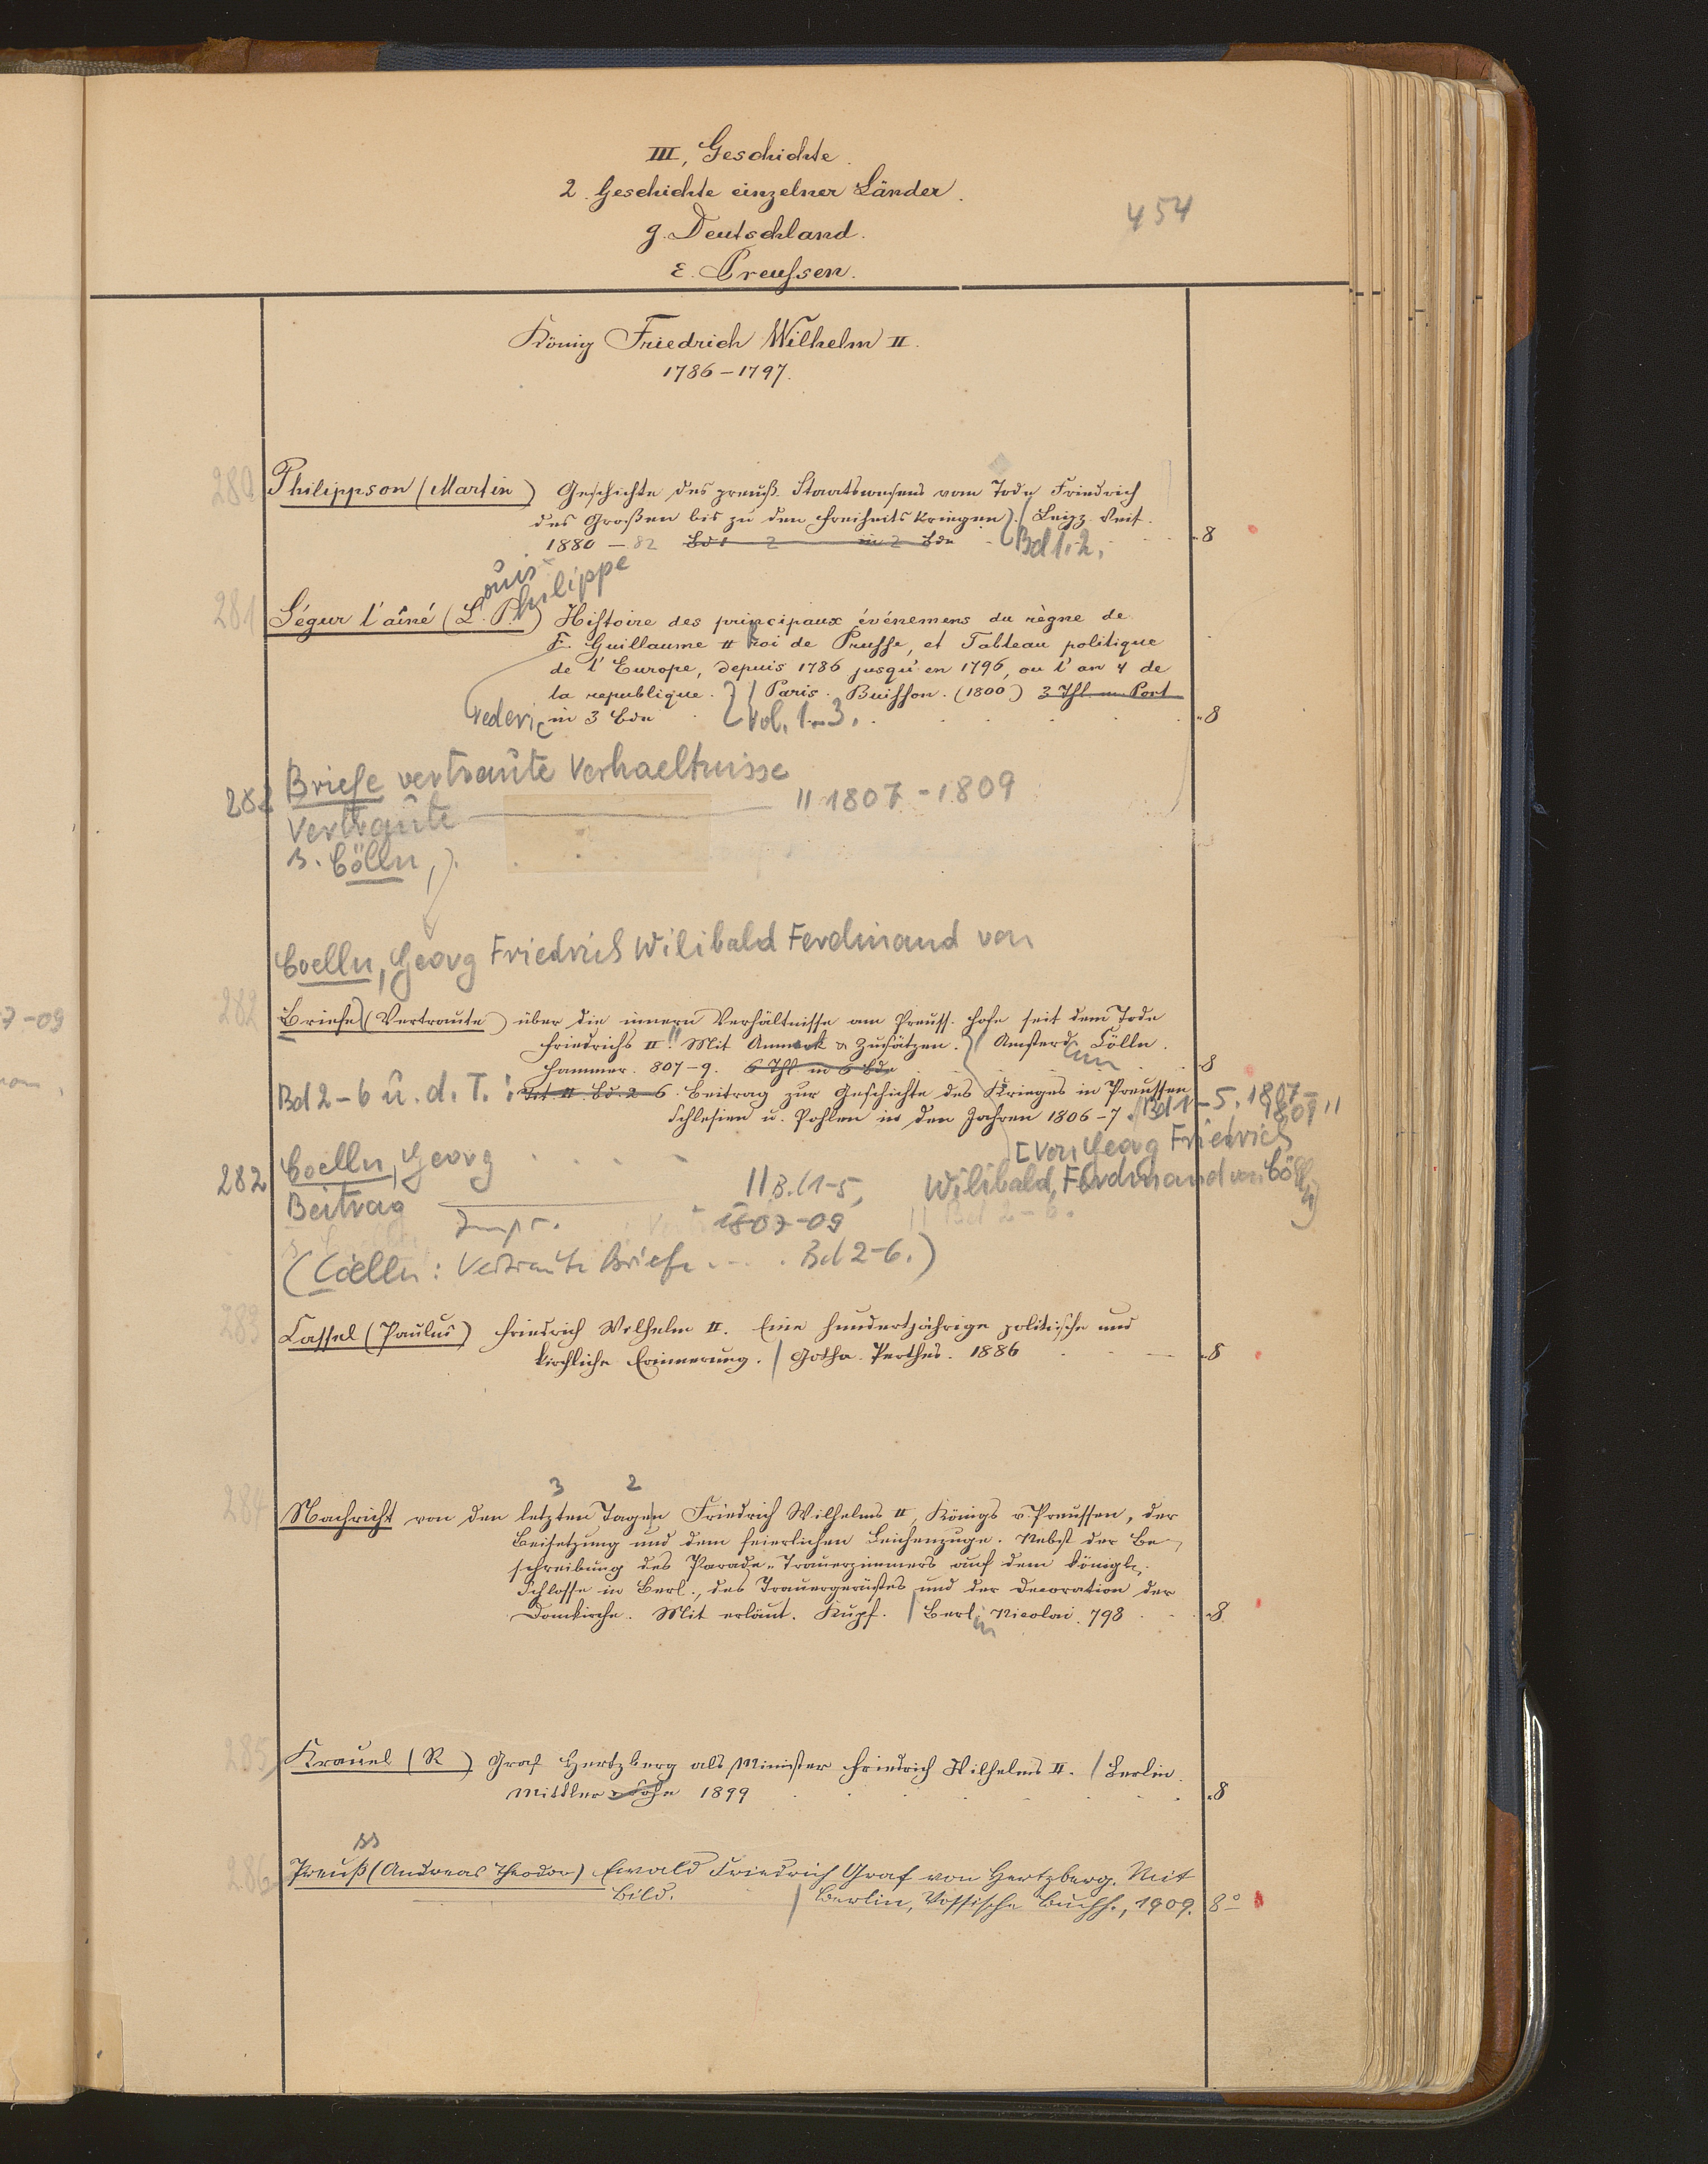 III, Geschichte.
2. Geschichte einzelner Länder.
454
g. Deutschland.
ε. Preußen.
König Friedrich Wilhelm II.
1786–1797.
280 Philippson (Martin) Geschichte des preuß. Staatswesens vom Tode Friedrich
des Großen bis zu den Freiheitskriegen. / Leipz. Veit.
1880–82 Bd 1 2 in 2 Bdn Bd 1. 2. 8
ouis hilippe
281 Ségur l'aîné (L. P.) Histoire des principaux événemens du règne de
F. Guillaume II Roi de Prusse, et Tableau politique
de l'Europe, depuis 1786 jusqu'en 1796, ou l'an 4 de
la republique. / Paris. Buisson. (1800) 3 Thl. m. Port
rederic in 3 Bdn Vol. 1–3. 8
Briefe vertraute Verhaeltnisse
282 Vertraute // 1807–1809
s. Cölln,
Coelln, Georg Friedrich Wilibald Ferdinand von
282 Briefe (Vertraute) über die innern Verhältnisse am Preuss. Hofe seit dem Tode
Friedrichs II. Mit Anmerk. & Zusätzen. / Amsterd. Cölln.
Hammer. 807–9. 6 Thl. in 6 Bdn 8
Bd 2–6 u. d. T.: Tit. II. Bd. 2–6. Beitrag zur Geschichte des Krieges in Preussen
Schlesien u. Pohlen in den Jahren 1806–7. Bd 1–5. 1807–
1809 //
[von Georg Friedrich
282 Coelln, Georg . . . .
Wilibald Ferdinand von Cölln]
Beitrag // B. (1–5,
Impr. 1807–09 // Bd 2–6.
(Cölln: Vertraute Briefe . . . . Bd 2–6.)
283 Cassel (Paulus) Friedrich Wilhelm II. Eine hundertjährige politische und
kirchliche Erinnerung. / Gotha. Perthes. 1886 8
3 2
284 Nachricht von den letzten Tagen Friedrich Wilhelms II, Königs v. Preussen, der
Beisetzung und dem feierlichen Leichenzuge. Nebst der Be-
schreibung des Parade-Trauerzimmers auf dem königl.
Schlosse in Berl., des Trauergerüstes und der Decoration der
Domkirche. Mit erläut. Kupf. / Berlin Nicolai. 798 8
285 Krauel (R ) Graf Hertzberg als Minister Friedrich Wilhelms II. / Berlin.
Mittler & Sohn 1899 8
ss
286 Preuß (Andreas Theodor) Ewald Friedrich Graf von Hertzberg. Mit
Bild. / Berlin, Vossische Buchh., 1909. 8°